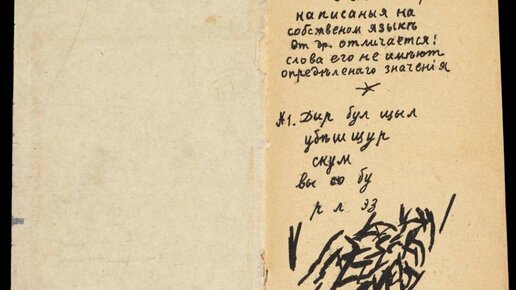 написаныя на
собственом языкѣ
от др. отличается:
слова его не имѣют
опредѣленаго значенія
№1. Дыр бул щыл
убѣшщур
скум
вы со бу
р л эз